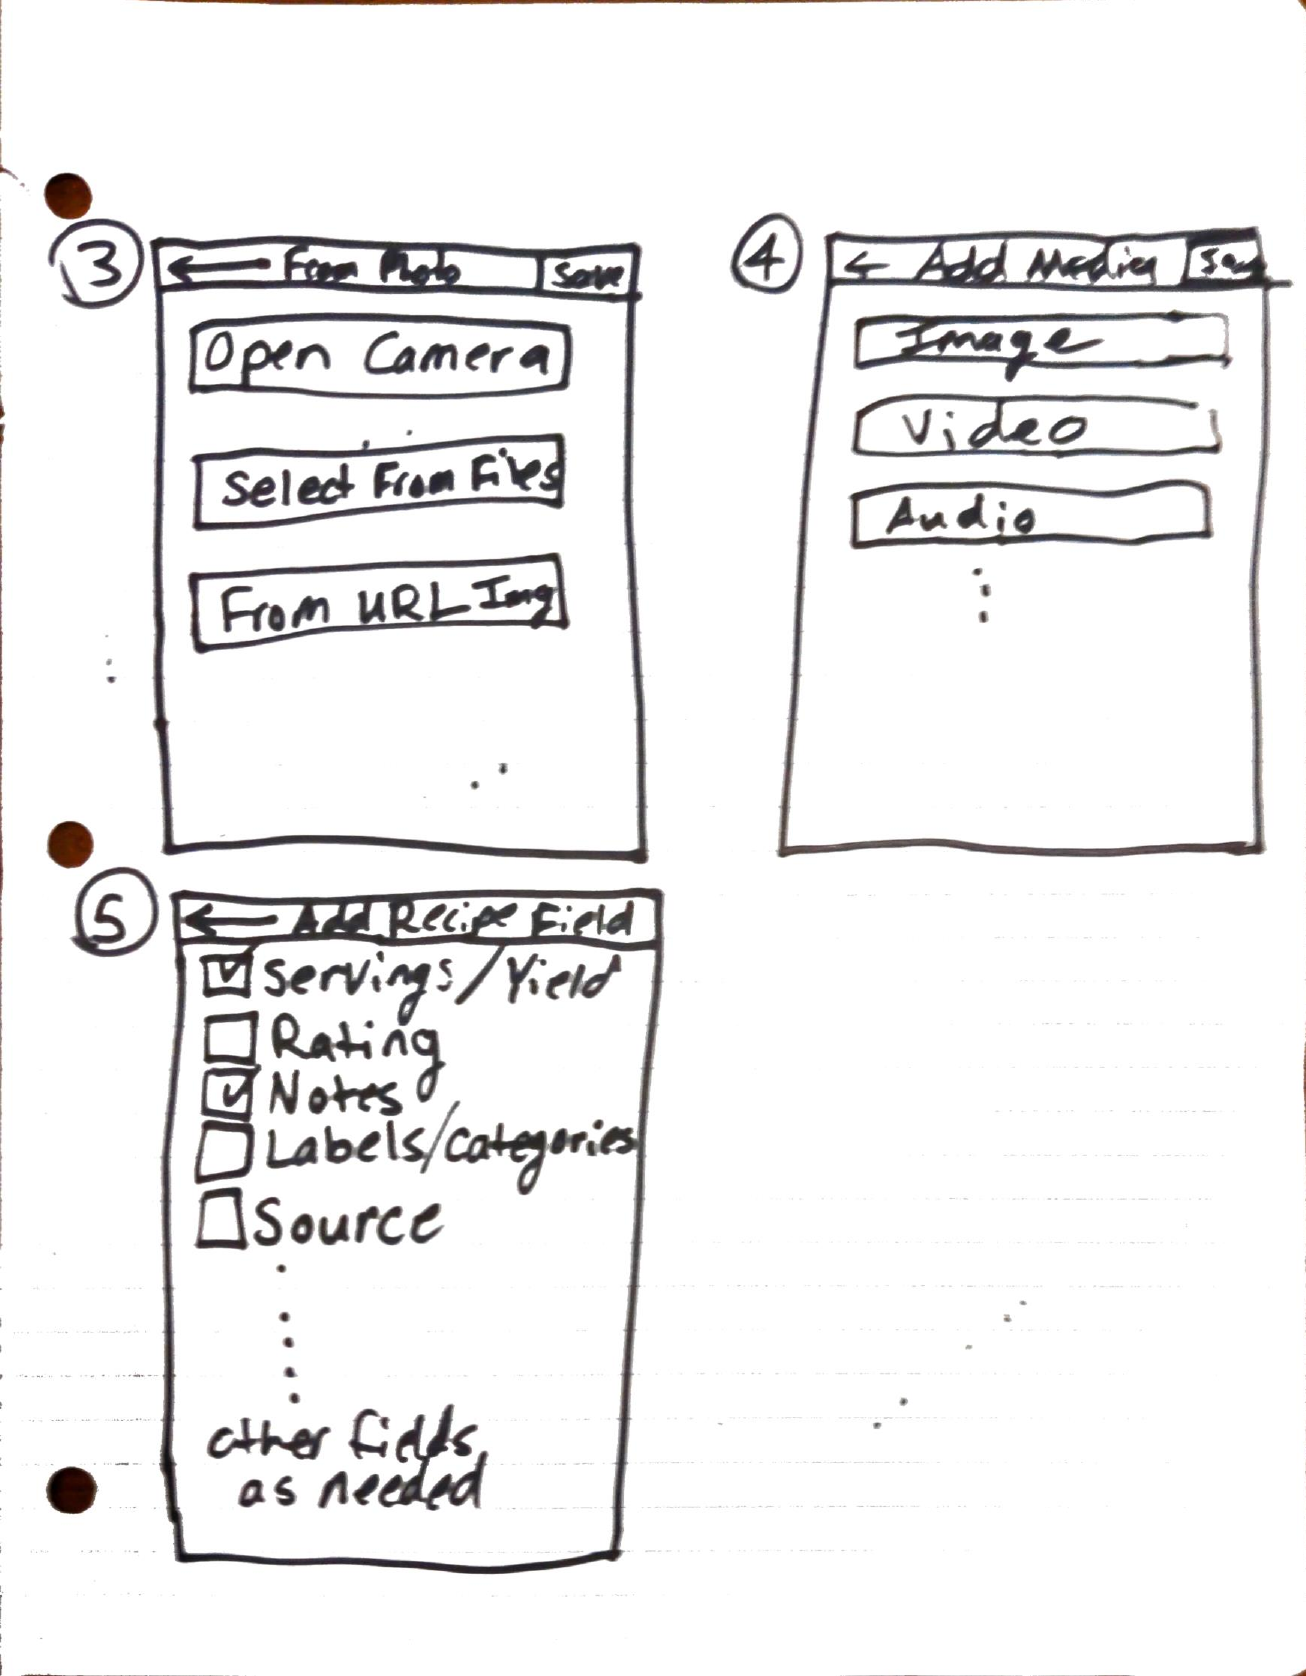 3
← From Photo Save
Open Camera
Select From Files
From URL Img
4
← Add Media Save
Image
Video
Audio
5
← Add Recipe Field
Servings/Yield
Rating
Notes
Labels/Categories
Source
other fields
as needed